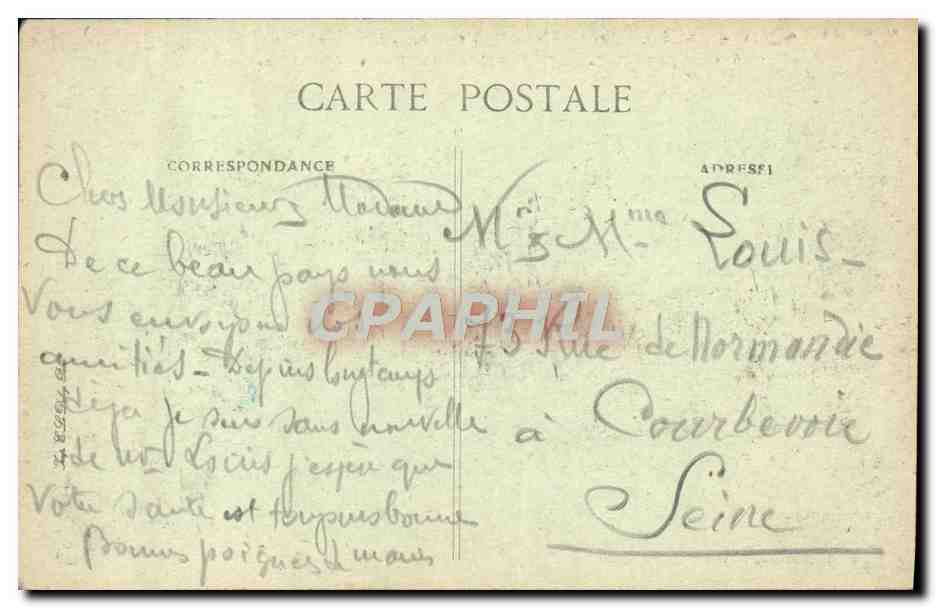 CARTE POSTALE
CORRESPONDANCE
ADRESSE
Chers Monsieur & Madame
De ce beau pays nous
Vous envoyons
amitiés - Depuis longtemps
déja je suis sans nouvelle
de Mr Louis j'espère que
Votre santé est toujours bonne
Bonnes poignées de mains
Mr & Mme Louis -
73 Rue de Normandie
à Courbevoie
Seine
CPAPHIL